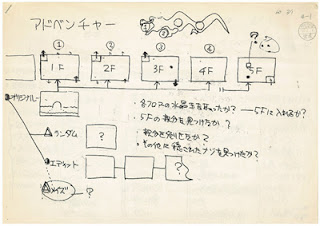 アドベンチャー
① ② ③ ④
1F 2F 3F 4F 5F
・各フロアの水晶玉を取ったか? — 5Fに入れるか?
・5Fの親分を見つけたか?
・親分を倒せたか?
・その他に隠されたナゾを見つけたか?
オリジナル
ランダム
?
エディット
?
メイズ
?